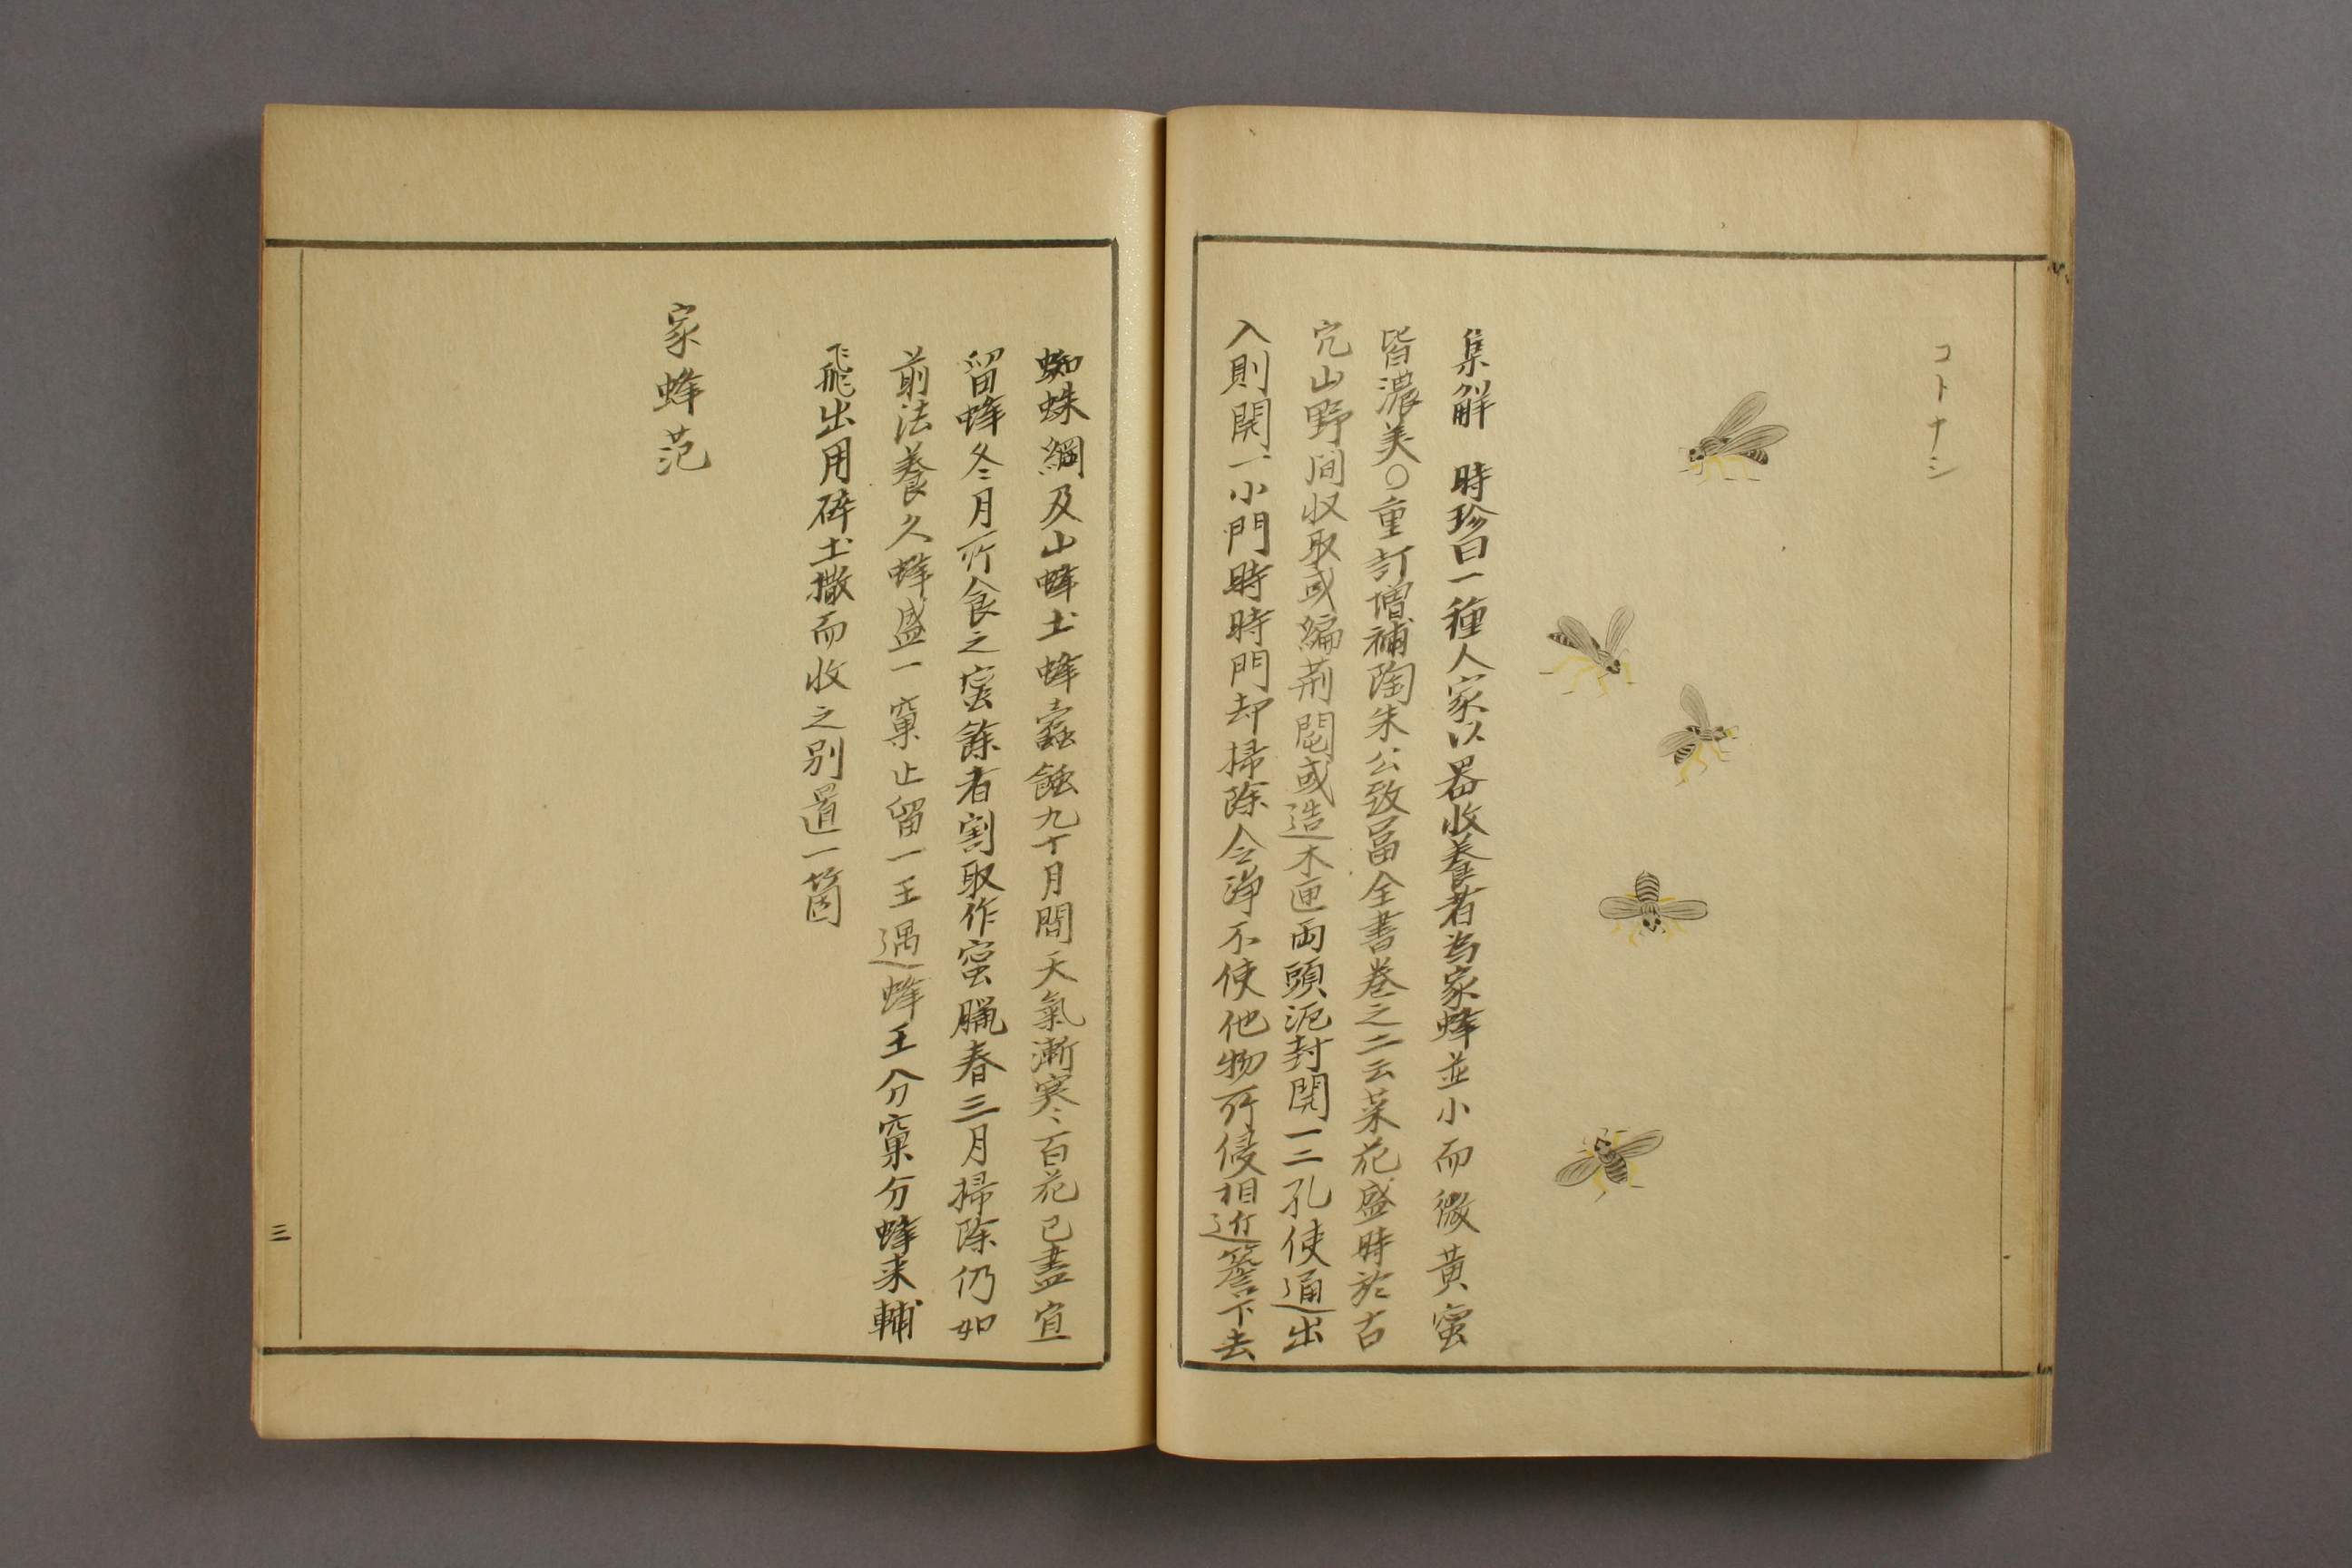 コトナシ
集解 時珍曰一種人家以器收養者为家蜂並小而微黄蜜
皆濃美〇重訂増補陶朱公致冨全書巻之二云菜花盛時於古
穴山野间収取或編荊闘或造木匣両頭泥封開一二孔使通出
入則開一小門時時門却掃除令浄不使他物所侵相近簷下去
蜘蛛網及山蜂土蜂蠧蝕九十月間天氣漸寒百花已盡宜
留蜂冬月所食之蜜餘者割取作蜜臘春三月掃除仍如
前法養久蜂盛一窠止留一王遇蜂王分窠分蜂来輔
飛出用碎土撒而收之别置一箇
家蜂范
三